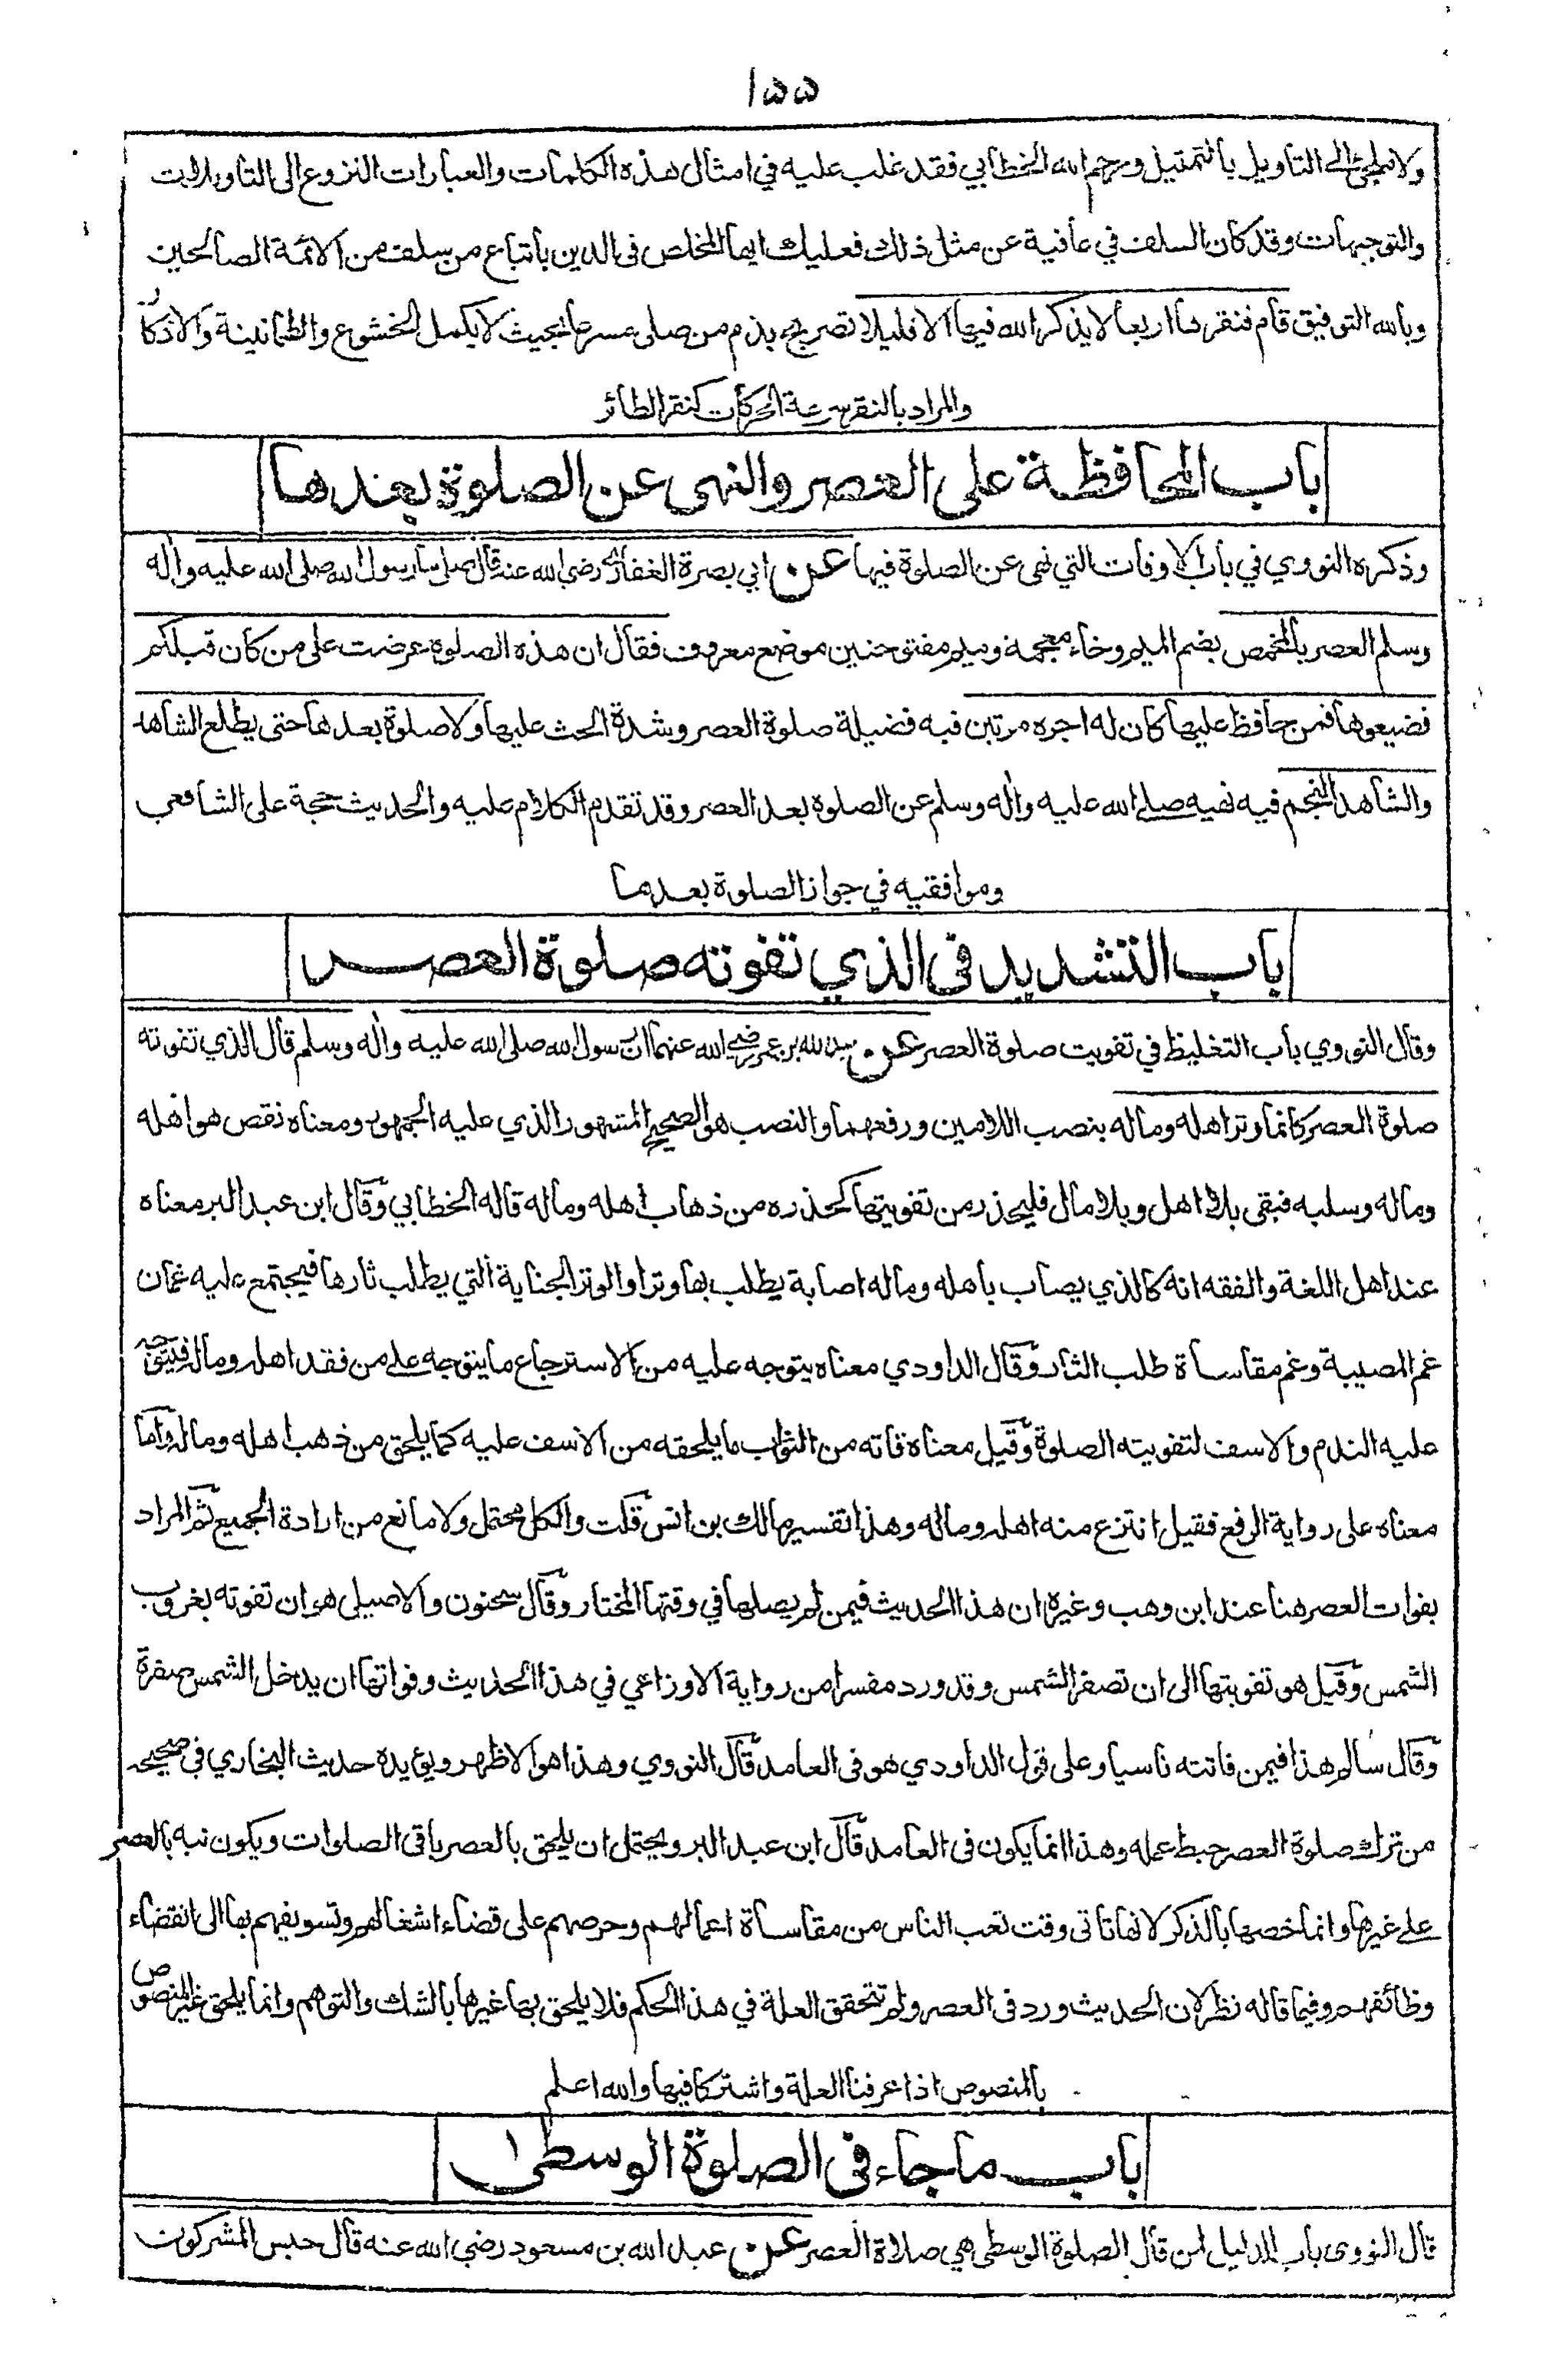 ١٥٥
ولا ملجئ الى التاويل بالتمثيل ورحم الله الخطابي فقد غلب عليه في امثال هذه الكلمات والعبارات النزوع الى التاويلات
والتوجيهات وقد كان السلف في عافية عن مثل ذلك فعليك ايها المخلص فى الدين باتباع من سلف من الائمة الصالحين
وبالله التوفيق قام فنقرها اربعا لا يذكر الله فيها الا قليلا تصريح بذم من صلى مسرعا بحيث لا يكمل الخشوع والطمانينة والاذكار
والمراد بالنقر سرعة الحركات كنقر الطائر
باب المحافظة على العصر والنهى عن الصلوة بعدها
وذكره النووي في باب الاوقات التي نهى عن الصلوة فيها عن ابي بصرة الغفاري رضى الله عنه قال صلى بنا رسول الله صلى الله عليه واٰله
وسلم العصر بالمخمص بضم الميم وخاء معجمة وميم مفتوحتين موضع معروف فقال ان هذه الصلوة عرضت على من كان قبلكم
فضيعوها فمن حافظ عليها كان له اجره مرتين فيه فضيلة صلوة العصر وشدة الحث عليها ولا صلوة بعدها حتى يطلع الشاهد
والشاهد النجم فيه نهيه صلى الله عليه واٰله وسلم عن الصلوة بعد العصر وقد تقدم الكلام عليه والحديث حجة على الشافعي
وموافقيه في جواز الصلوة بعدها
باب التشديد فى الذي تفوته صلوة العصر
وقال النووي باب التغليظ في تفويت صلوة العصر عن عبد الله بن عمر رضي الله عنهما ان رسول الله صلى الله عليه واٰله وسلم قال الذي تفوته
صلوة العصر كانما وتر اهله وماله بنصب اللامين ورفعهما والنصب هو الصحيح المشهور الذي عليه الجمهور ومعناه نقص هو اهله
وماله وسلبه فبقى بلا اهل وبلا مال فليحذر من تفويتها كحذره من ذهاب اهله وماله قاله الخطابي وقال ابن عبد البر معناه
عند اهل اللغة والفقه انه كالذي يصاب باهله وماله اصابة يطلب بها وترا والوتر الجناية التي يطلب ثارها فيجتمع عليه غمان
غم المصيبة وغم مقاساة طلب الثار وقال الداودي معناه يتوجه عليه من الاسترجاع ما يتوجه على من فقد اهله وماله فيتوجه
عليه الندم والاسف لتفويته الصلوة وقيل معناه فاته من الثواب ما يلحقه من الاسف عليه كما يلحق من ذهب اهله وماله واما
معناه على رواية الرفع فقيل انتزع منه اهله وماله وهذا تفسير مالك بن انس قلت والكل محتمل ولا مانع من ارادة الجميع ثم المراد
بفوات العصر هنا عند ابن وهب وغيره ان هذا الحديث فيمن لم يصلها في وقتها المختار وقال سحنون والاصيلى هو ان تفوته بغروب
الشمس وقيل هو تفويتها الى ان تصفر الشمس وقد ورد مفسرا من رواية الاوزاعي في هذا الحديث وفواتها ان يدخل الشمس صفرة
وقال سالم هذا فيمن فاتته ناسيا وعلى قول الداودي هو فى العامد قال النووي وهذا هو الاظهر ويؤيده حديث البخاري في صحيحه
من ترك صلوة العصر حبط عمله وهذا انما يكون فى العامد قال ابن عبد البر ويحتمل ان يلحق بالعصر باقى الصلوات ويكون نبه بالعصر
على غيرها وانما خصها بالذكر لانها تاتى وقت تعب الناس من مقاساة اعمالهم وحرصهم على قضاء اشغالهم وتسويفهم بها الى انقضاء
وظائفهم وفيما قاله نظر لان الحديث ورد فى العصر ولم تتحقق العلة في هذا الحكم فلا يلحق بها غيرها بالشك والتوهم وانما يلحق غير المنصوص
بالمنصوص اذا عرفنا العلة واشتركا فيها والله اعلم
باب ما جاء فى الصلوة الوسطى
قال النووى باب الدليل لمن قال الصلوة الوسطى هي صلاة العصر عن عبد الله بن مسعود رضي الله عنه قال حبس المشركون